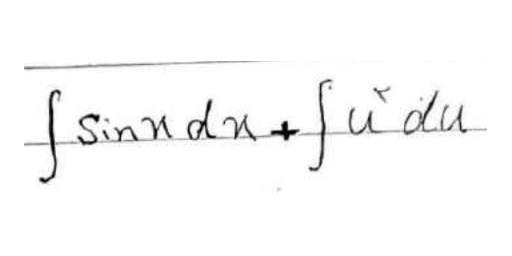 ∫ sinx dx + ∫ u² du